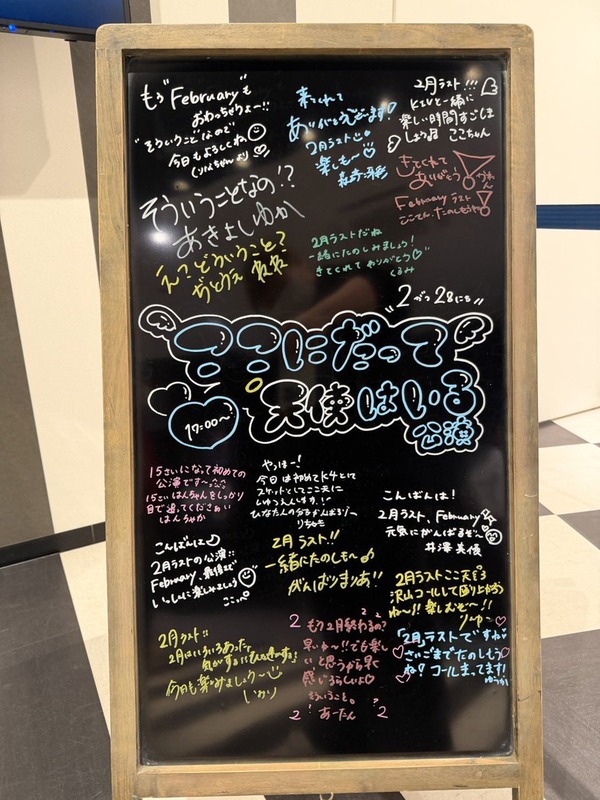 もう"February"も
おわっちゃうよー!!
"そういうこと"なので
今日もよろしくね
くりんちゃんより
来てくれて
ありがとうございます!
2月ラスト
楽しも〜♡
2月ラスト!!!
KIVと一緒に
楽しい時間すごしま
しょう ここちゃん
きてくれて
ありがとう
かれん
February ラスト
ここてん、たのしもうね
そういうことなの!?
あきよしゆか
え?どういうこと?
2月ラストだね
一緒にたのしみましょう!
きてくれて ありがとう♡
くるみ
"2がつ28にち"
ここにだって
天使はいる
公演
17:00〜
15さいになって初めての
公演です〜
15さい はんちゃんをしっかり
目で追ってくださぁい
はんちゃか
やっほー!
今日は初めてK4として
スケットとしてここ天に
しゅつえんします!
ひなたんの分もがんばるゾ〜
りちゃも
こんばんは!
2月ラスト、February
元気にがんばるぞ〜!
井澤美優
こんばんは
2月ラストの公演!!
February、最後まで
いっしょに楽しみましょう
ここっぺ
2月ラスト!!
一緒にたのしも〜♪
がんばりまりあ!!
2月ラストここ天も
沢山コールして盛り上がろう
ね〜!! 楽しむぞ〜!!
りゅ〜
2月ラスト!!
2月はいろいろあったで
今日も楽しみましょう〜
いかり
もう2月終わるの?
早いゆ〜!!でも楽し
いと思うから早く
感じるらしいよ♡
そういうこと。
あーたん
2月ラストですね
さいごまでたのしもう
ね!コールまってます!
ゆうか